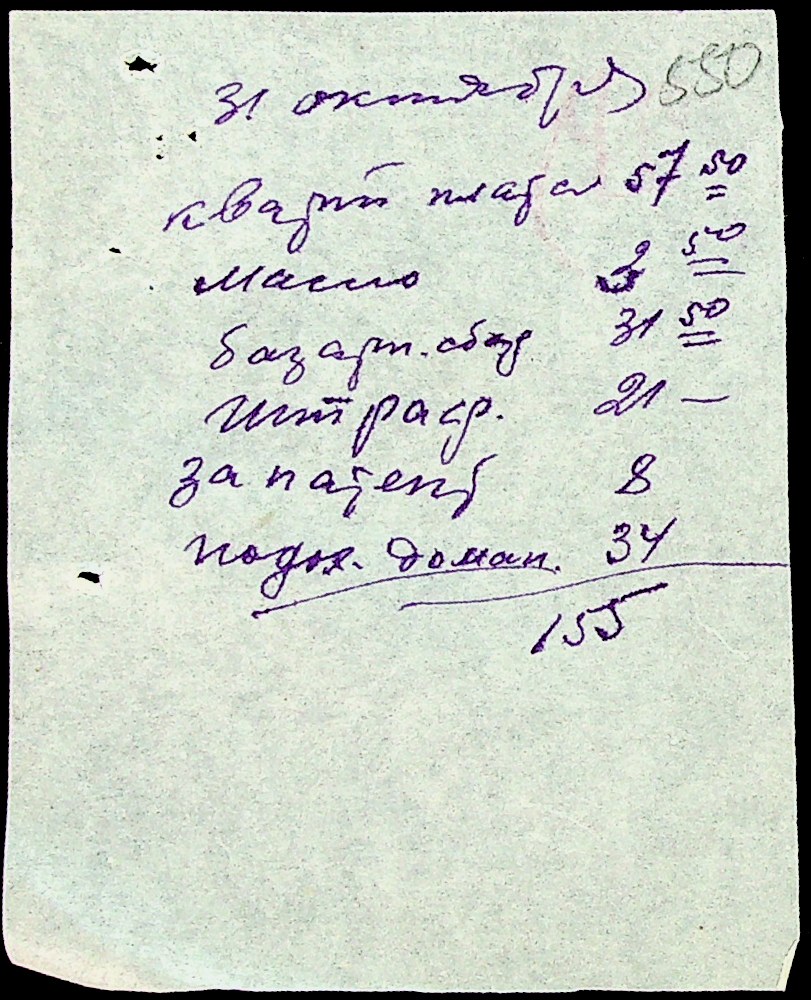 31 октября 550
кварт плата 57 50
масло 3 50
базарн. сбор 31 50
штраф. 21 —
за патент 8
подох. доман. 34
155